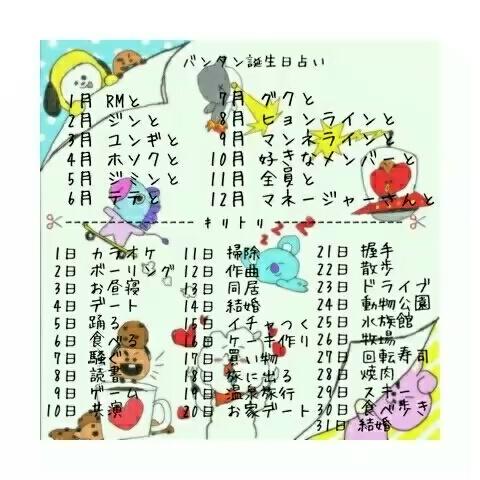 バンタン誕生日占い
1月 RMと
2月 ジンと
3月 ユンギと
4月 ホソクと
5月 ジミンと
6月 テテと
7月 グクと
8月 ヒョンラインと
9月 マンネラインと
10月 好きなメンバーと
11月 全員と
12月 マネージャーさんと
キリトリ
1日 カラオケ
2日 ボーリング
3日 お昼寝
4日 デート
5日 踊る
6日 食べる
7日 騒ぐ
8日 読書
9日 ゲーム
10日 共演
11日 掃除
12日 作曲
13日 同居
14日 結婚
15日 イチャつく
16日 ケーキ作り
17日 買い物
18日 旅に出る
19日 温泉旅行
20日 お家デート
21日 握手
22日 散歩
23日 ドライブ
24日 動物公園
25日 水族館
26日 牧場
27日 回転寿司
28日 焼肉
29日 スキー
30日 食べ歩き
31日 結婚